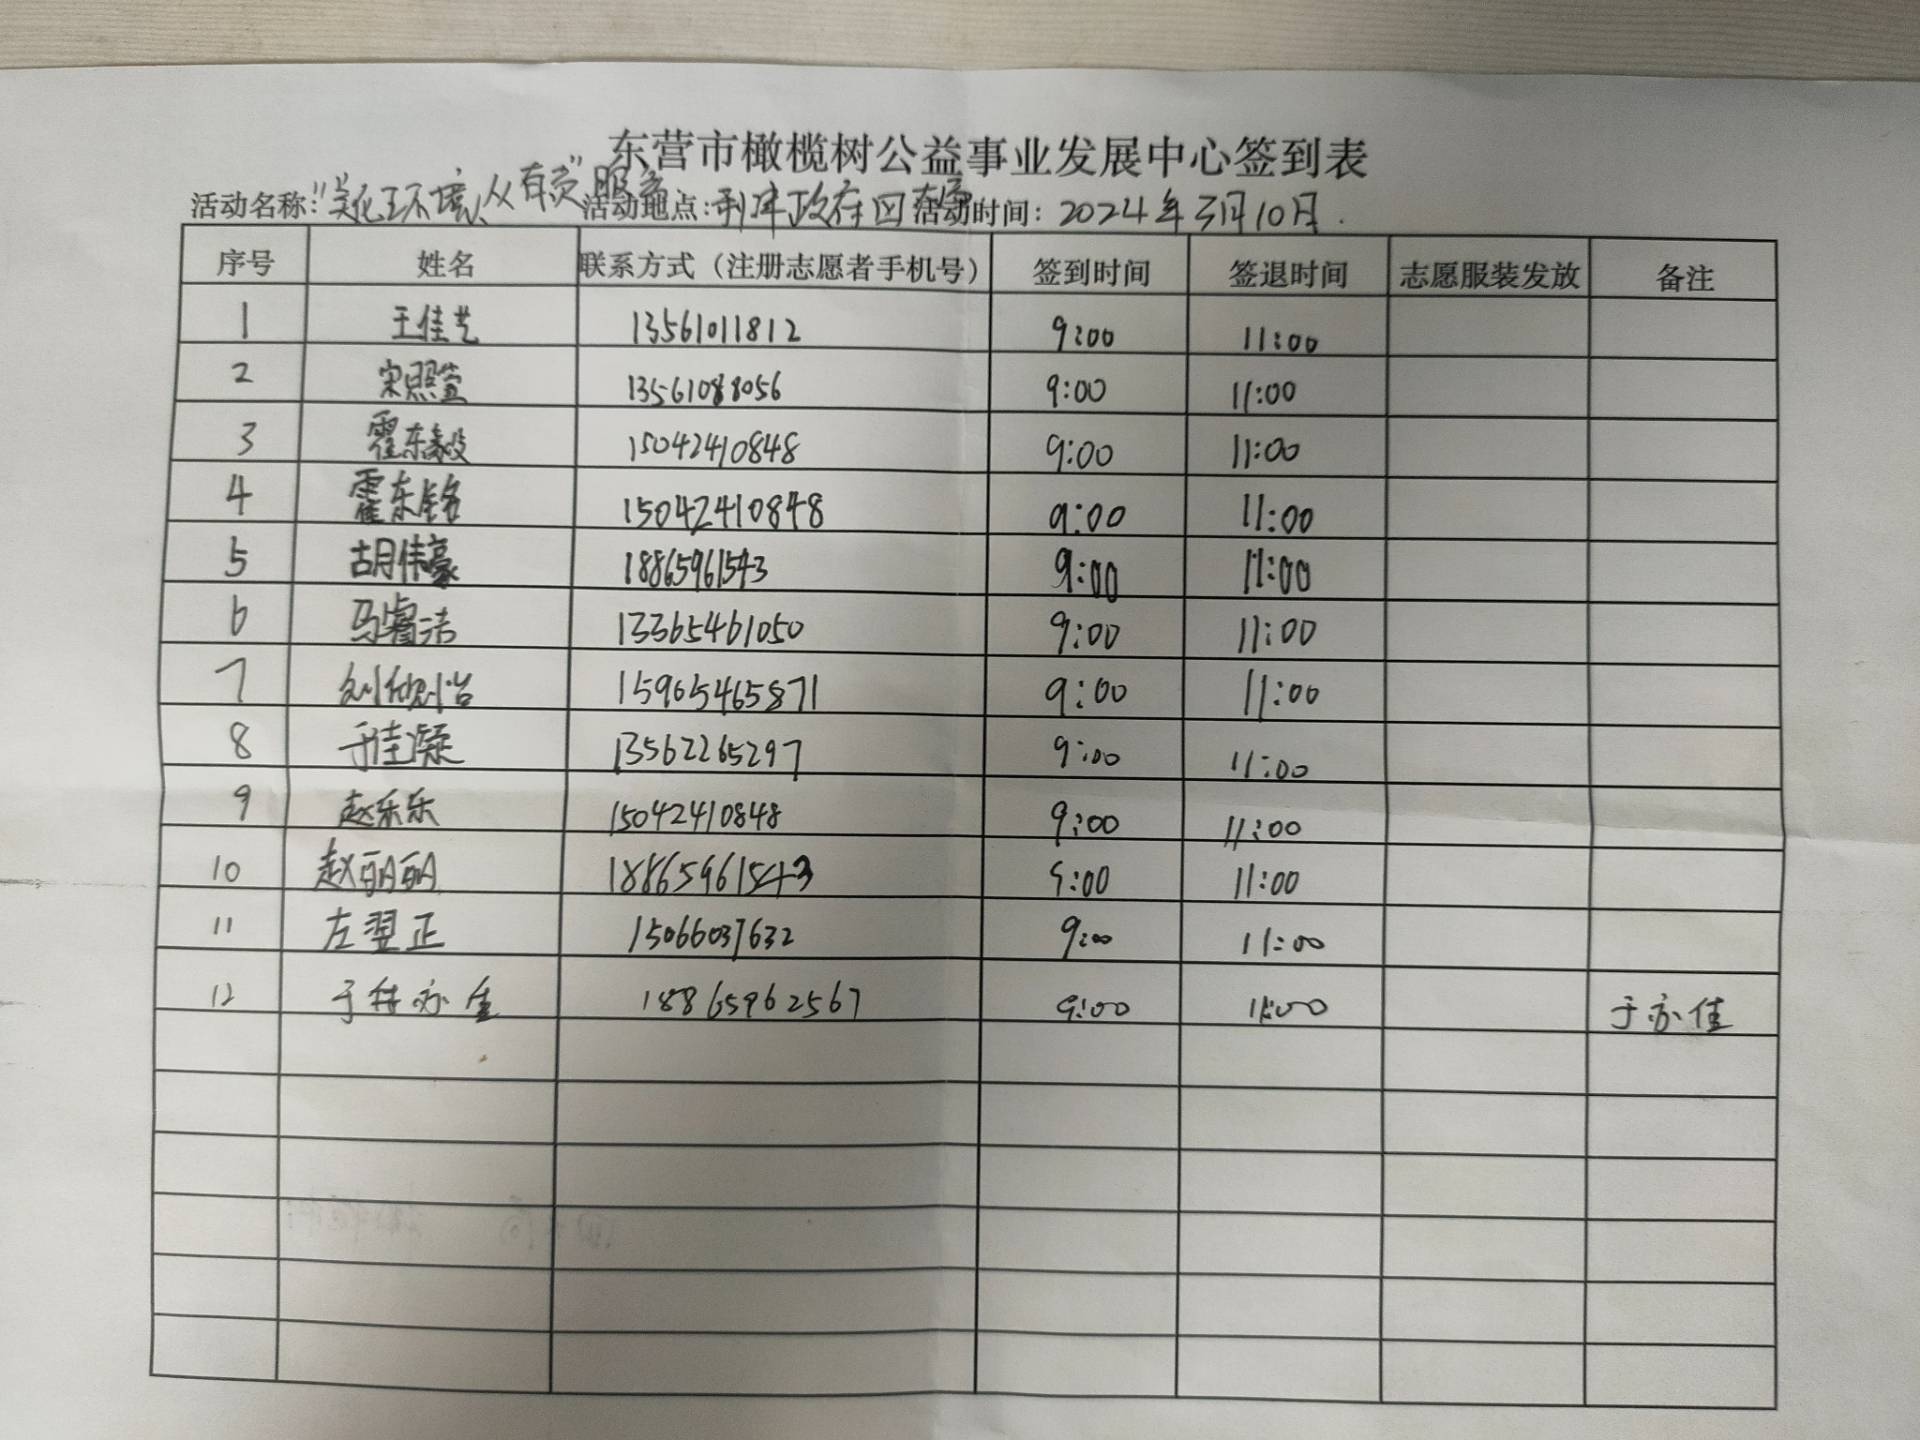 东营市橄榄树公益事业发展中心签到表
活动名称:"美化环境、从有责"服务 活动地点:利津政府回 活动时间: 2024年3月10日.
序号 姓名 联系方式（注册志愿者手机号） 签到时间 签退时间 志愿服装发放 备注
1 王佳艺 13561011812 9:00 11:00
2 宋照萱 13561088056 9:00 11:00
3 霍东毅 15042410848 9:00 11:00
4 霍东铭 15042410848 9:00 11:00
5 胡伟豪 18865961543 9:00 11:00
6 马睿洁 13365461050 9:00 11:00
7 刘怡 15965465871 9:00 11:00
8 于佳凝 13562265297 9:00 11:00
9 赵乐乐 15042410848 9:00 11:00
10 赵丽丽 18865961543 9:00 11:00
11 左翌正 15066037632 9:00 11:00
12 于亦佳 18865962567 9:00 11:00 于亦佳